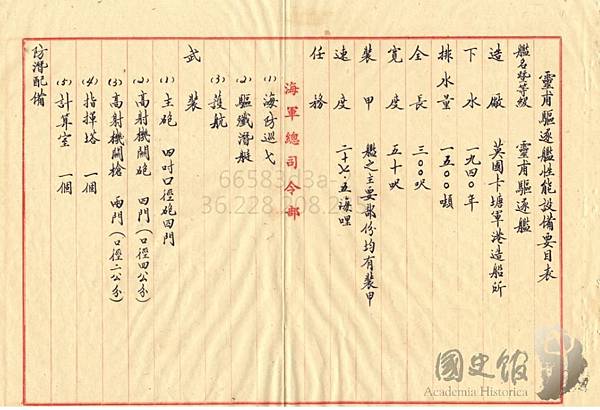 靈甫驅逐艦性能設備要目表
艦名暨等級 靈甫驅逐艦
造廠 英國卡塘軍港造船所
下水 一九四〇年
排水量 一五〇〇噸
全長 三〇〇呎
寬度 五十呎
裝甲 艦之主要部份均有裝甲
速度 二十七·五海哩
任務
(1) 海防巡弋
(2) 驅殲潛艇
(3) 護航
武裝
(1) 主砲 四吋口徑砲四門
(2) 高射機關砲 四門(口徑四公分)
(3) 高射機關槍 兩門(口徑二公分)
(4) 指揮塔 一個
(5) 計算室 一個
防潛配備
海軍總司令部
國史館
Academia Historica